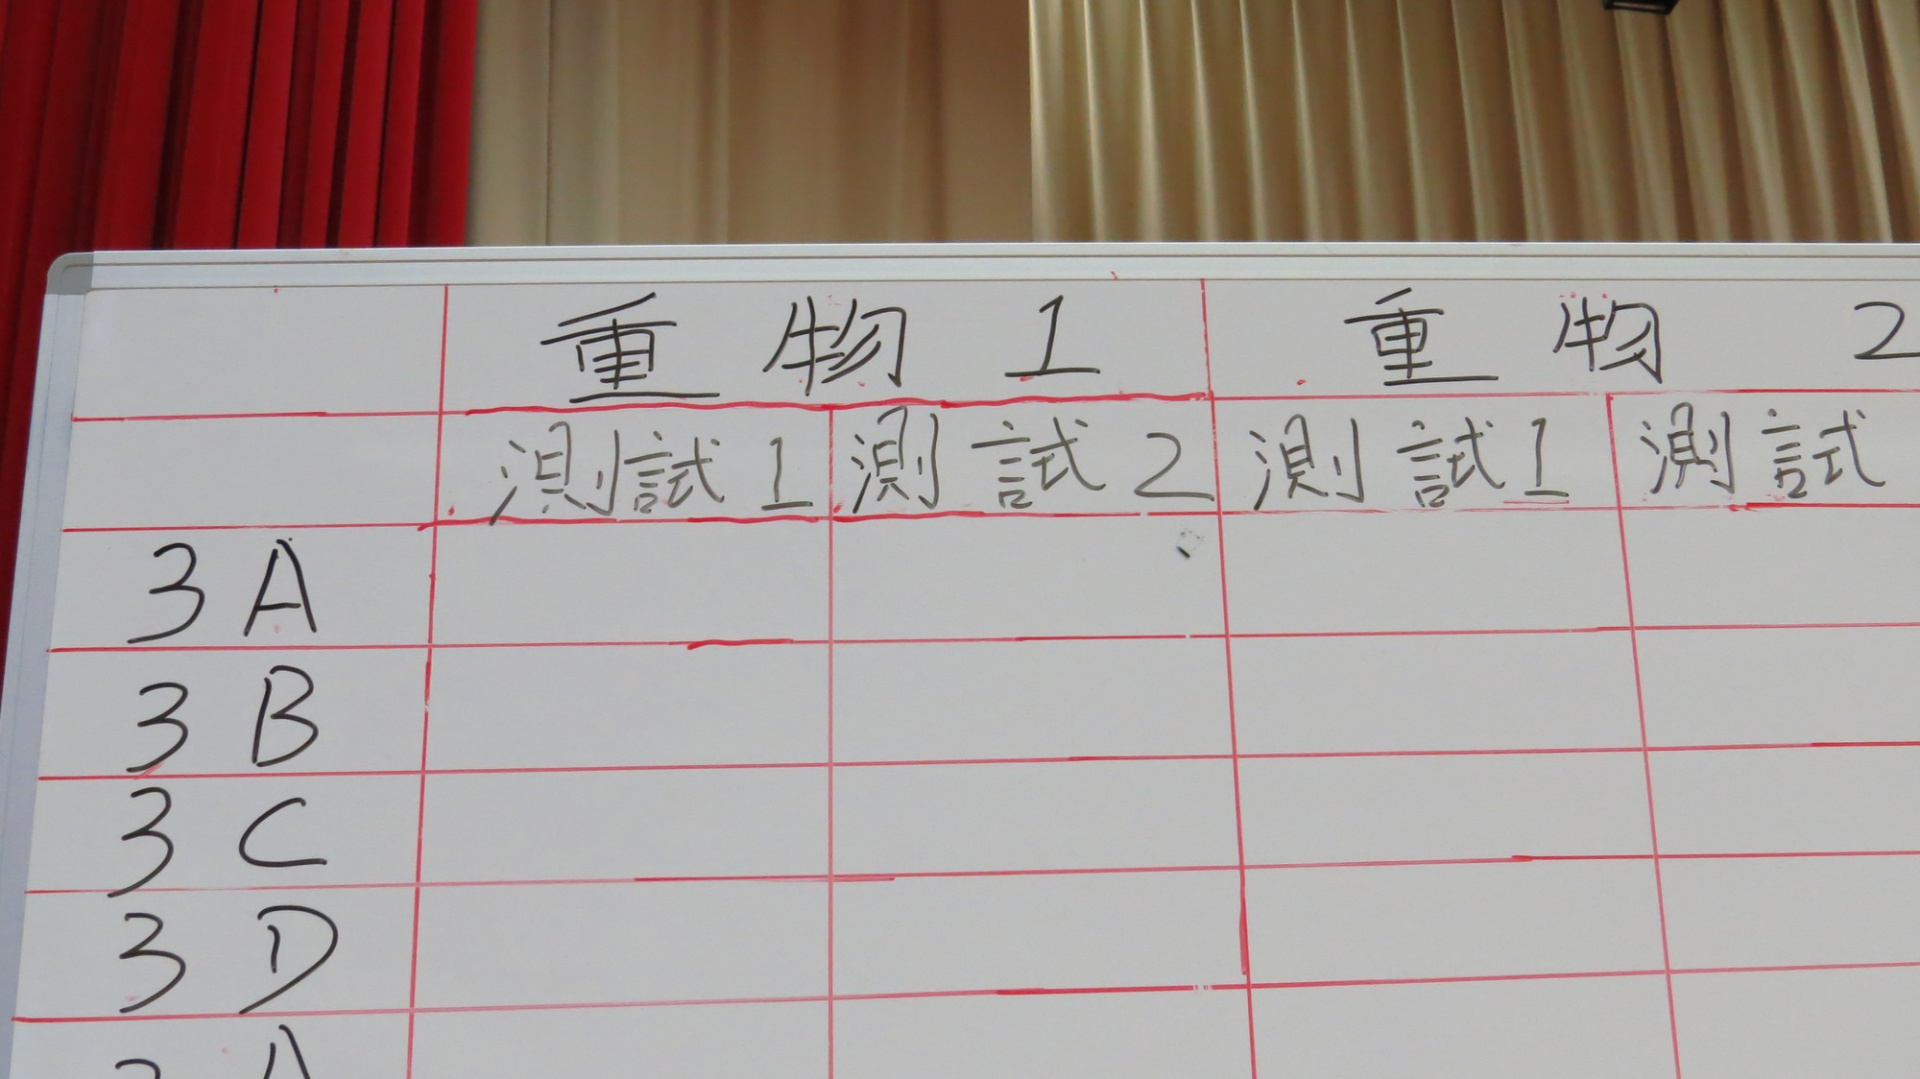 重物 1 重物 2
測試1 測試2 測試1 測試
3A
3B
3C
3D